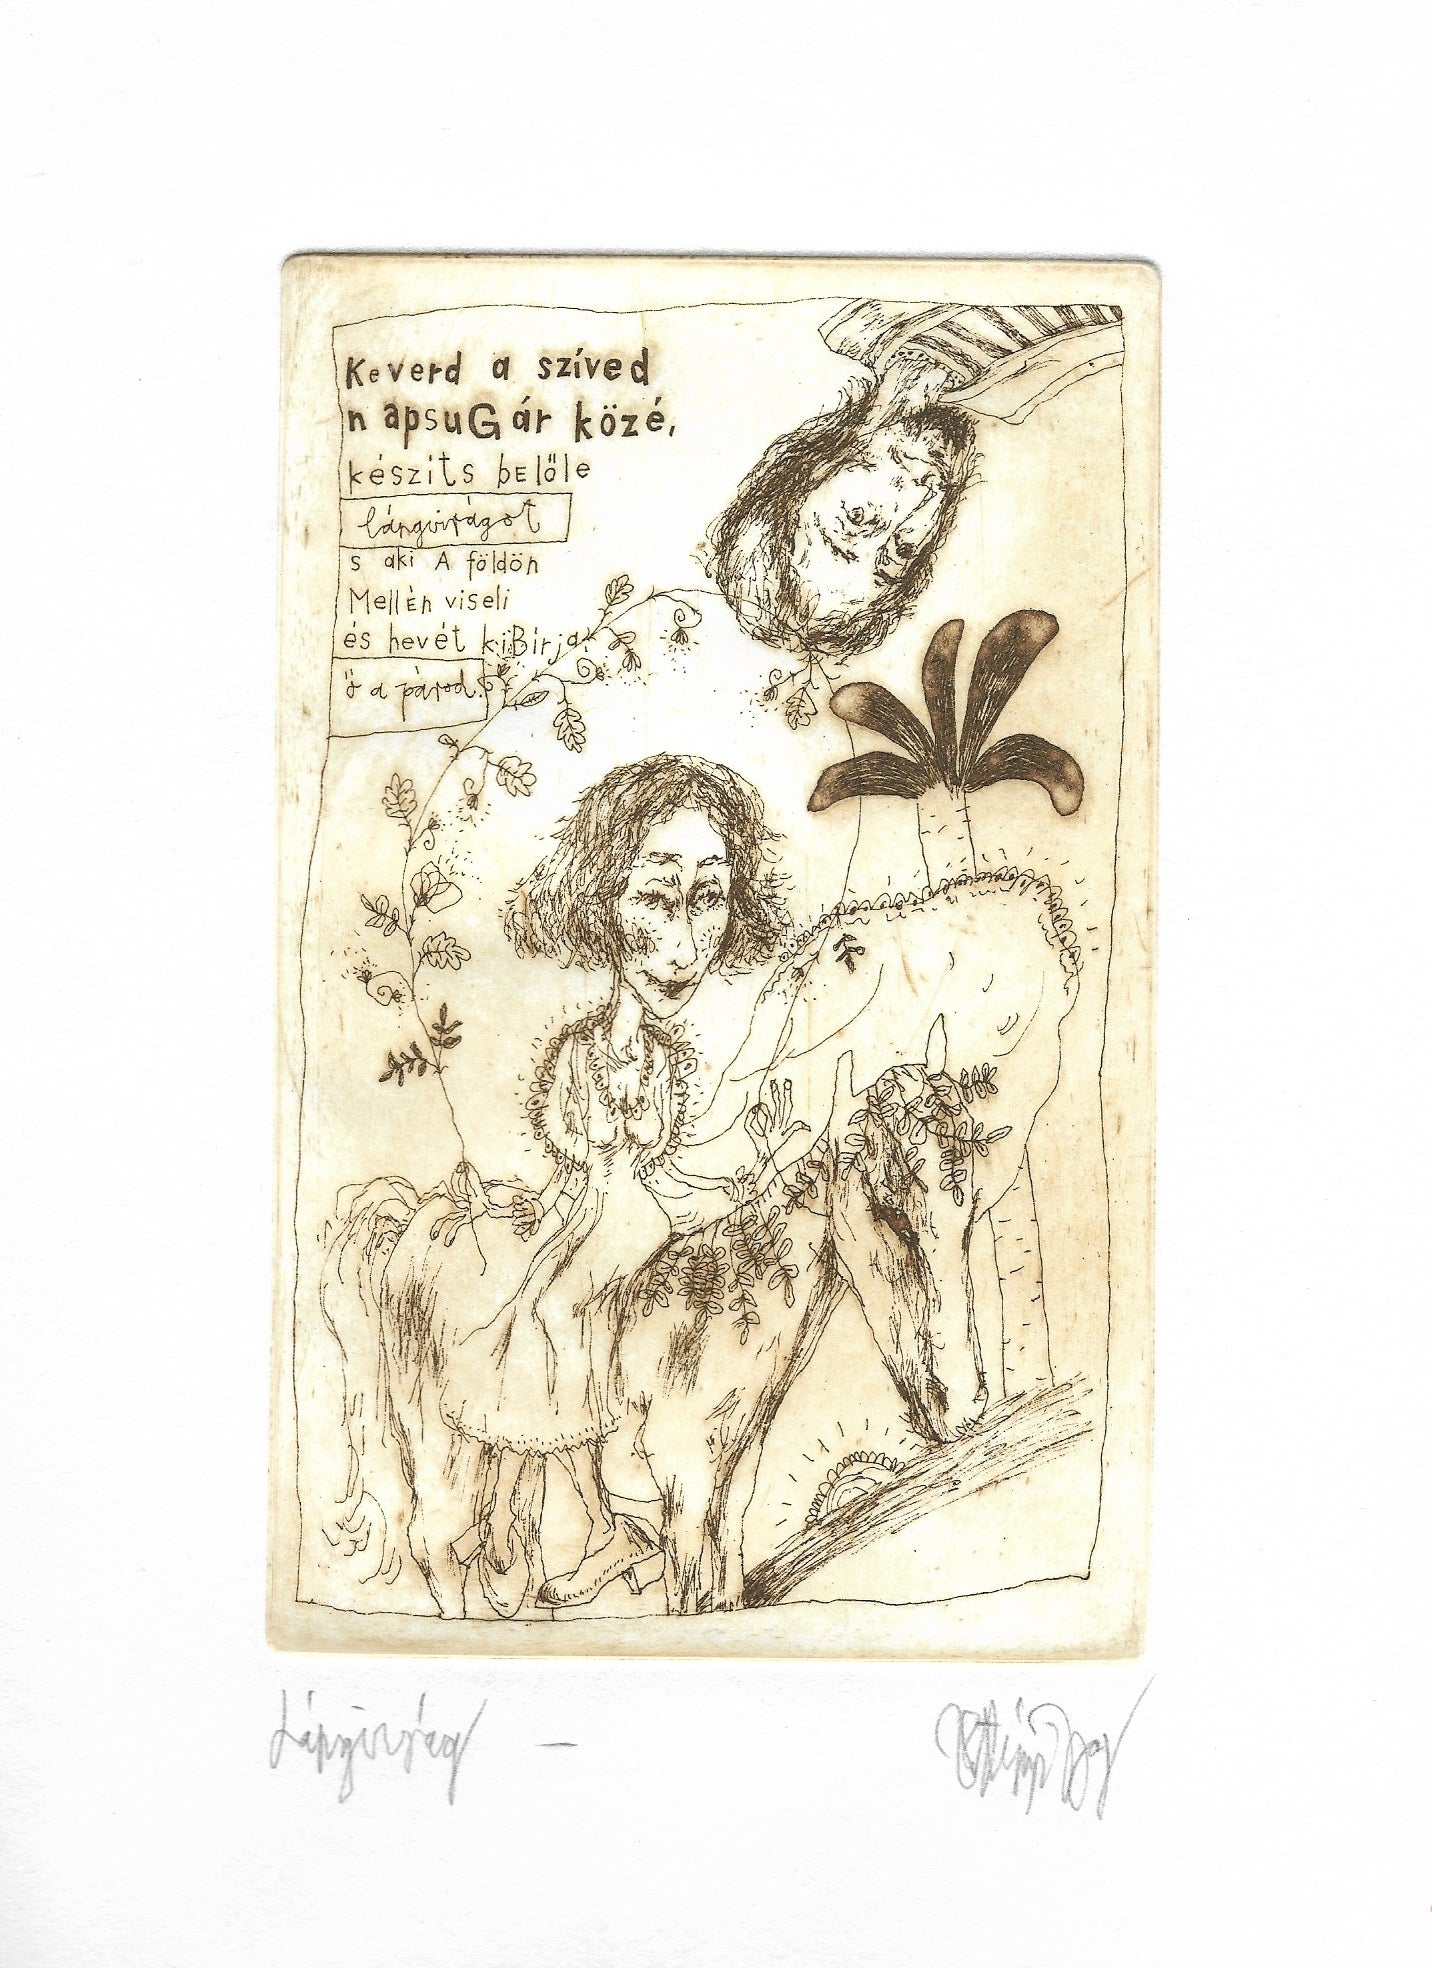 Keverd a szíved
napsuGár közé,
készits bElőle
lángvirágot
s aki A földön
MellEn viseli
és hevét kiBirja,
ő a párod.
Lángvirág –